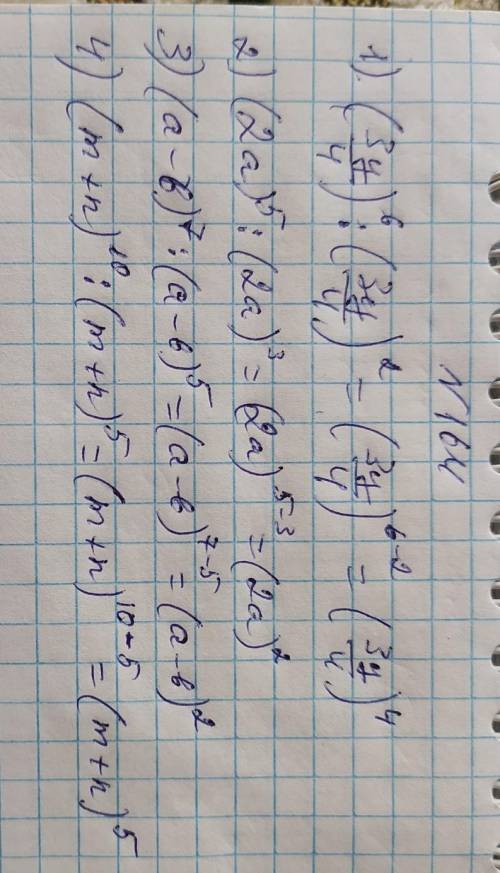 N164
1) (3y/4)^6 : (3y/4)^2 = (3y/4)^6-2 = (3y/4)^4
2) (2a)^5 : (2a)^3 = (2a)^5-3 = (2a)^2
3) (a-b)^7 : (a-b)^5 = (a-b)^7-5 = (a-b)^2
4) (m+n)^10 : (m+n)^5 = (m+n)^10-5 = (m+n)^5